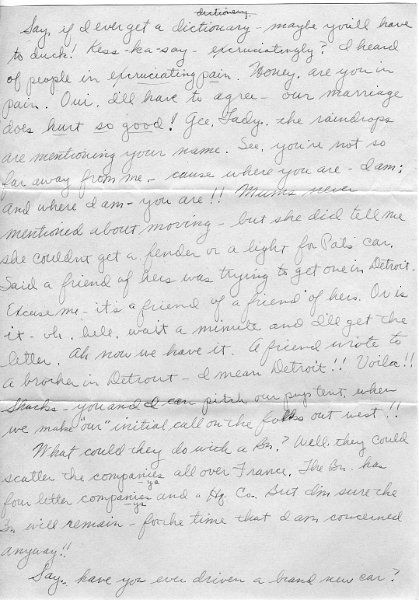 dictionary
Say, if I ever get a dictionary - maybe you'll have
to duck! Kess-ka-say - excruciatingly? I heard
of people in excruciating pain. Honey, are you in
pain. Oui, I'll have to agree - our marriage
does hurt so good! Gee, Lady, the raindrops
are mentioning your name. See, you're not so
far away from me - cause where you are - I am;
and where I am - you are!! Mums never
mentioned about moving - but she did tell me
she couldnt get a fender or a light for Pats car.
Said a friend of hers was trying to get one in Detroit.
Excuse me - it's a friend of a friend of hers. Or is
it - oh, hell, wait a minute and I'll get the
letter. Ah now we have it. A friend wrote to
a brother in Detrout - I mean Detroit!! Voila!!
Shucks - you and I can pitch our pup tent, when
we make our" initial call on the folks out west!!
What could they do with a Bn.? Well, they could
scatter the companies all over France. The Bn. has
four letter companies and a Hq. Co. But I'm sure the
Bn will remain - for the time that I am concerned
anyway!!
Say, have you ever driven a brand new car?